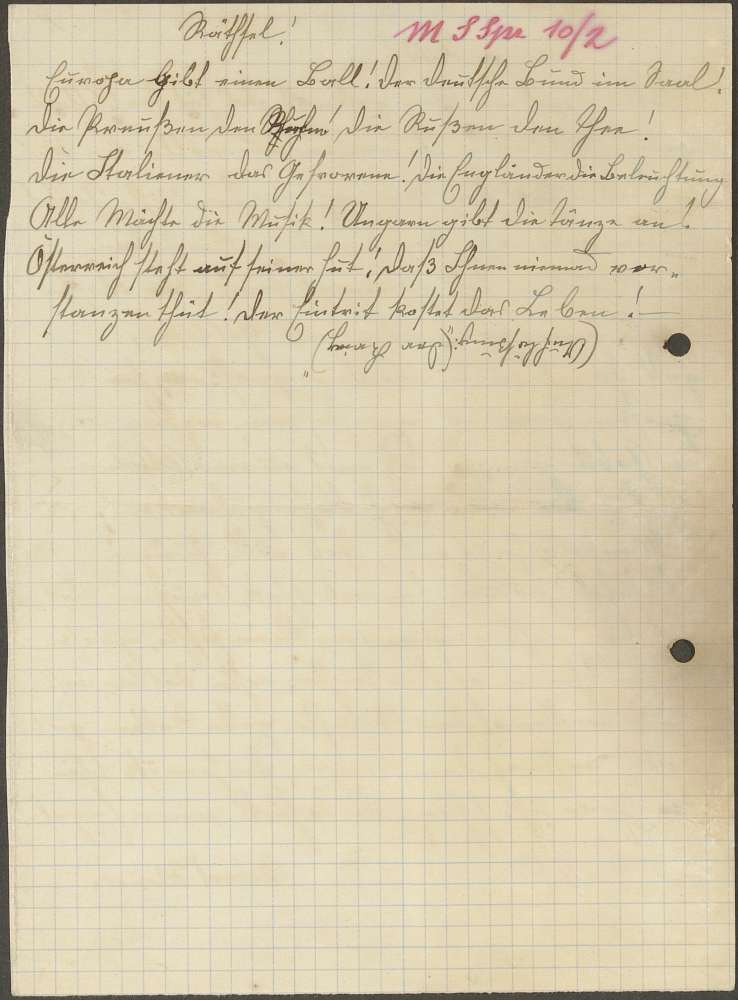 Räthsel! M S Spr 10/2
Europa gibt einen Ball! Der deutsche Bund im Saal!
Die Preußen den Ruhm! Die Rußen den Thee!
Die Italiener das Gefrorene! Die Engländer die Beleuchtung
Alle Mächte die Musik! Ungarn gibt die Tänze an!
Österreich steht auf seiner Hut! daß Ihnen niemand vor-
stanzen thut! Der Eintrit kostet das Leben! —
(Auflösung: "Der Krieg")